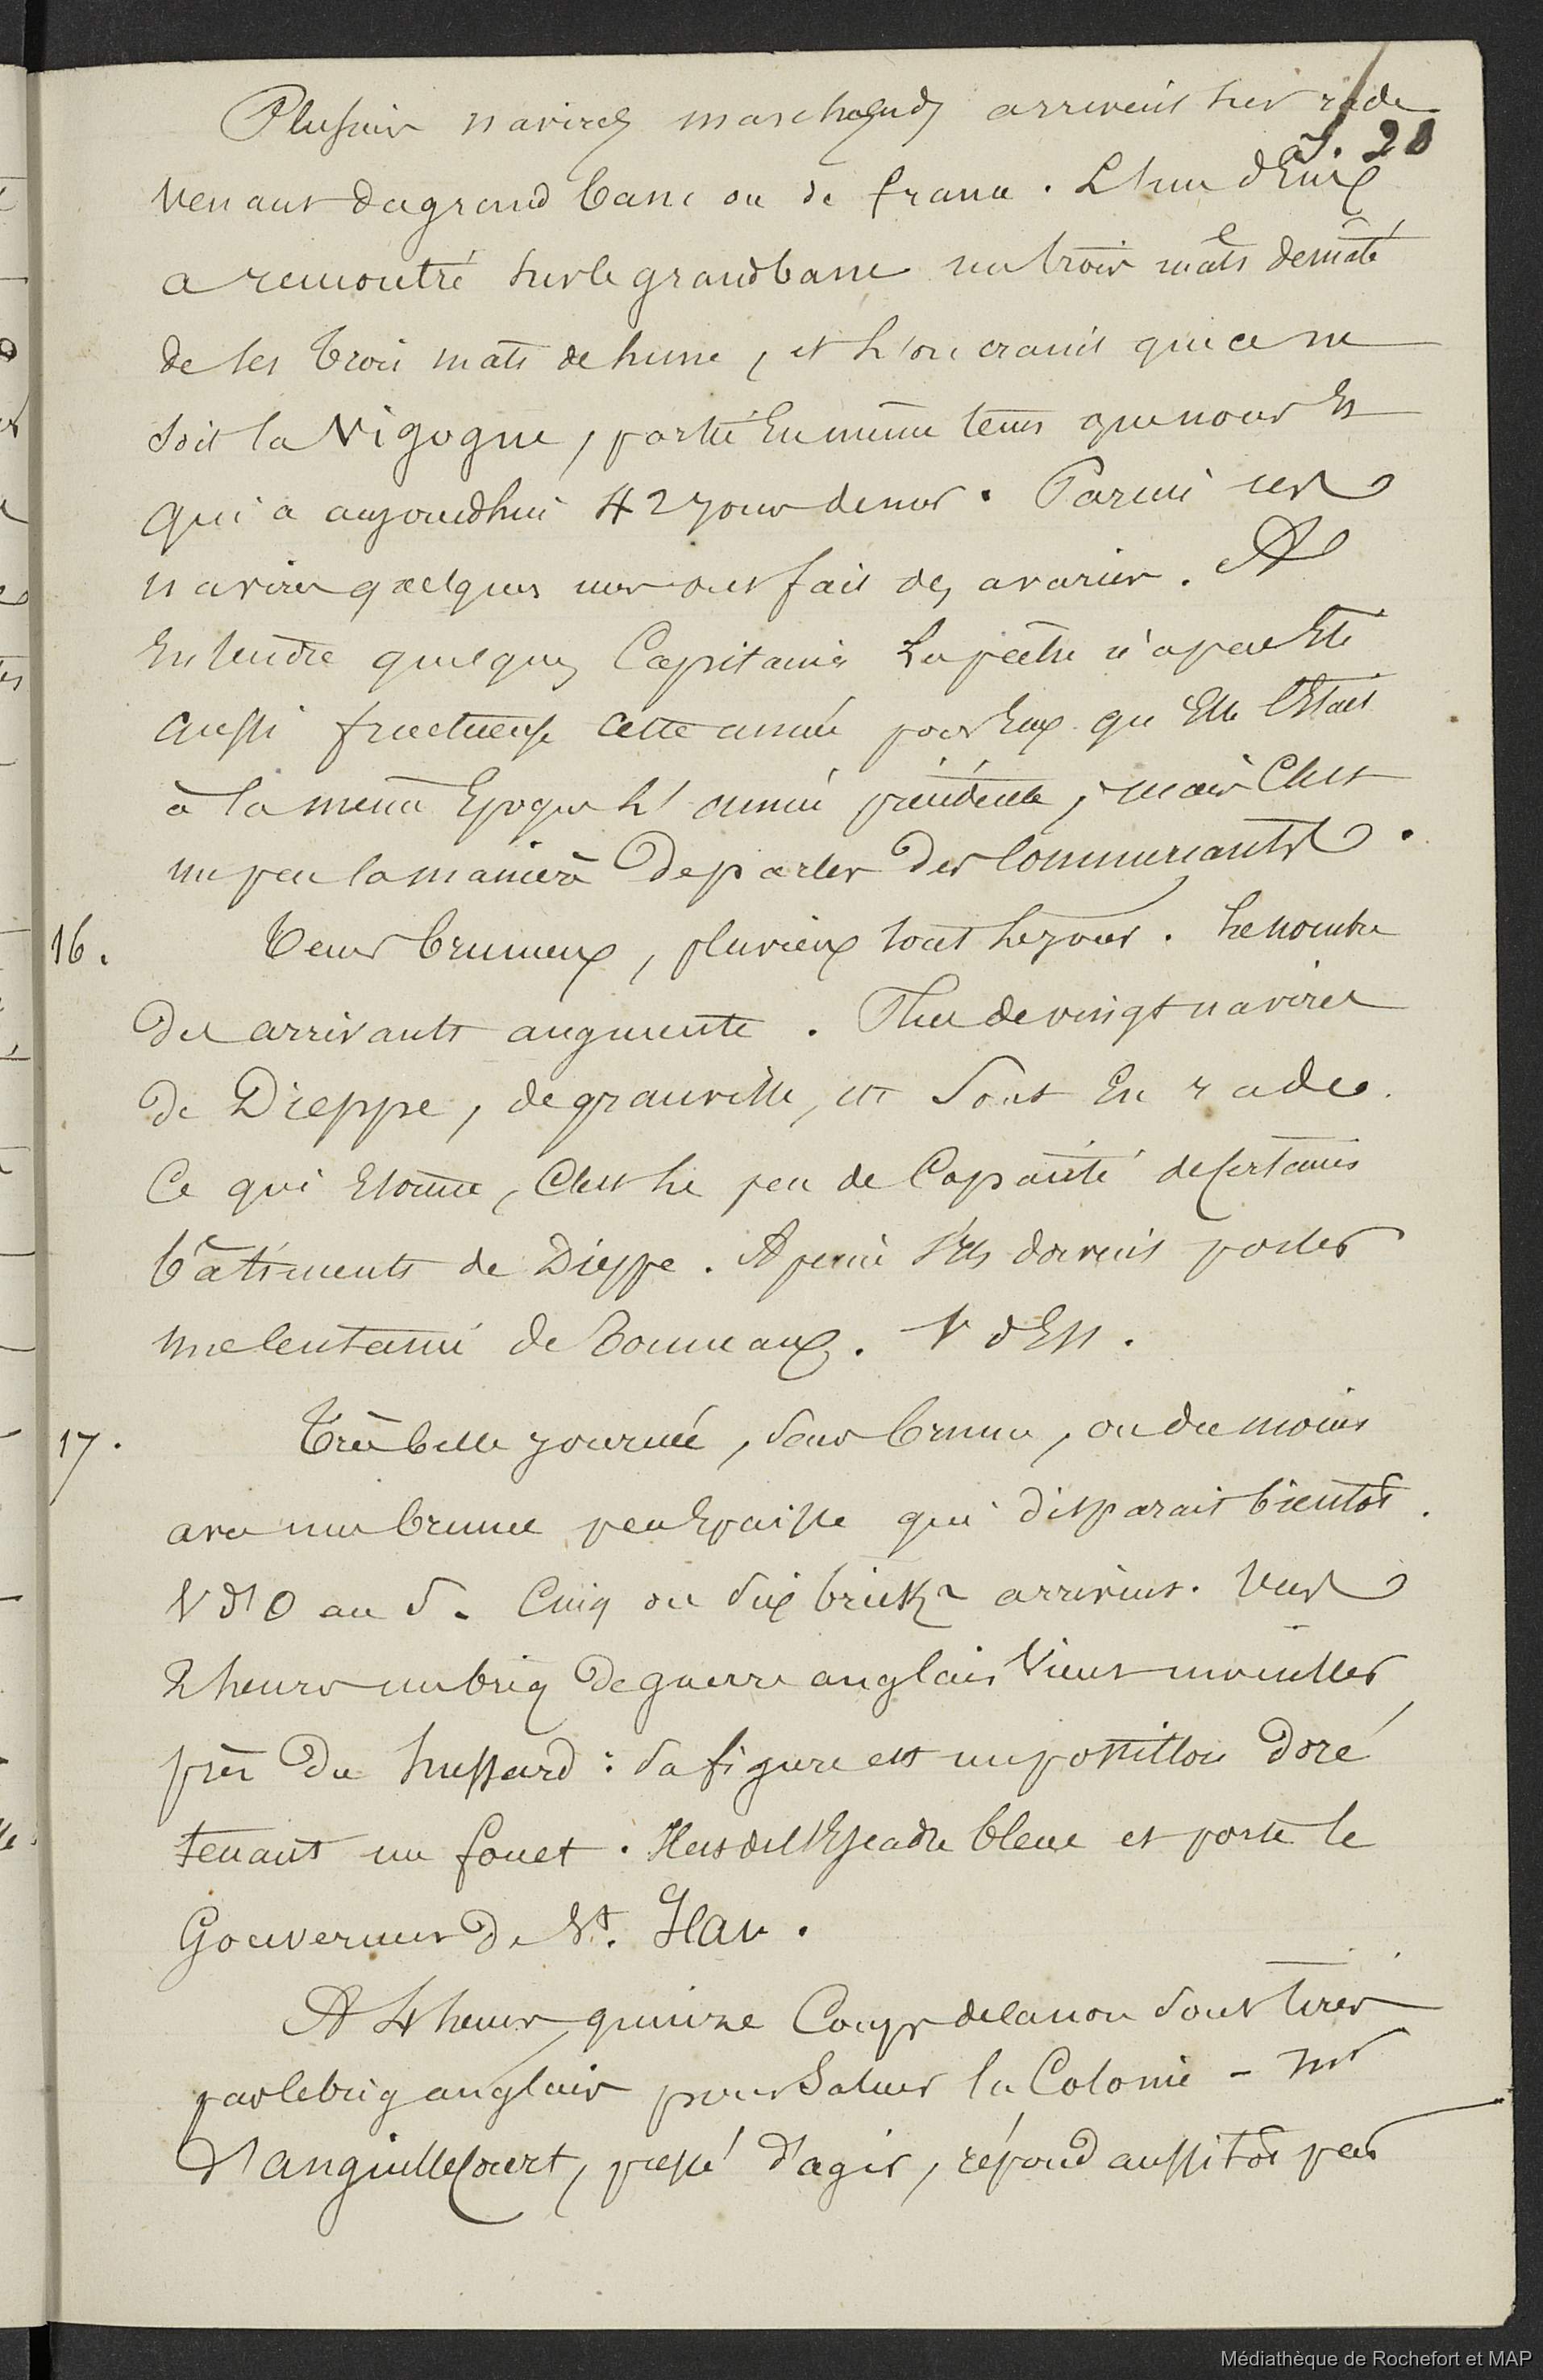 Plusieurs navires marchands arrivent sur rade
J. 20
venant du grand banc ou de france. L'un d'Eux
a rencontré sur le grand banc un trois mâts démâté
de ses trois mats de hune, et l'on craint que ce ne
soit la Vigogne, partie En même tems que nous Et
qui a aujourdhui 42 jours de mer. Parmi ces
navires quelques uns ont fait des avaries. A
Entendre quelques Capitaines La pêche n'a pas Eté
aussi fructueuse cette année pour Eux qu'Elle l'Etait
à la même Epoque l'année précédente, mais C'est
un peu la manière de parler des Commerçants.
16. Tems brumeux, pluvieux tout le jour. Le nombre
des arrivants augmente. Plus de vingt navires
de Dieppe, de granville, etc sont En rade.
Ce qui Etonne, C'est le peu de Capacité de certains
bâtiments de Dieppe. A peine s'ils doivent porter
une centaine de Tonneaux. V d'En.
17. Très belle journée, sans brume, ou du moins
avec une brume peu Epaisse qui disparait bientôt.
V d'O au S. Cinq ou Six bricks arrivent. Vers
2 heures un brig de guerre anglais Vient mouiller
près du hussard : sa figure est un postillon doré
tenant un fouet. Il est de l'Escadre bleue et porte le
Gouverneur de St. Jean.
A 4 heures quinze Coups de Canon sont tirés
par le brig anglais pour Saluer la Colonie - Mr
d'Anguillecourt, pressé d'agir, répond aussitôt par
Médiathèque de Rochefort et MAP